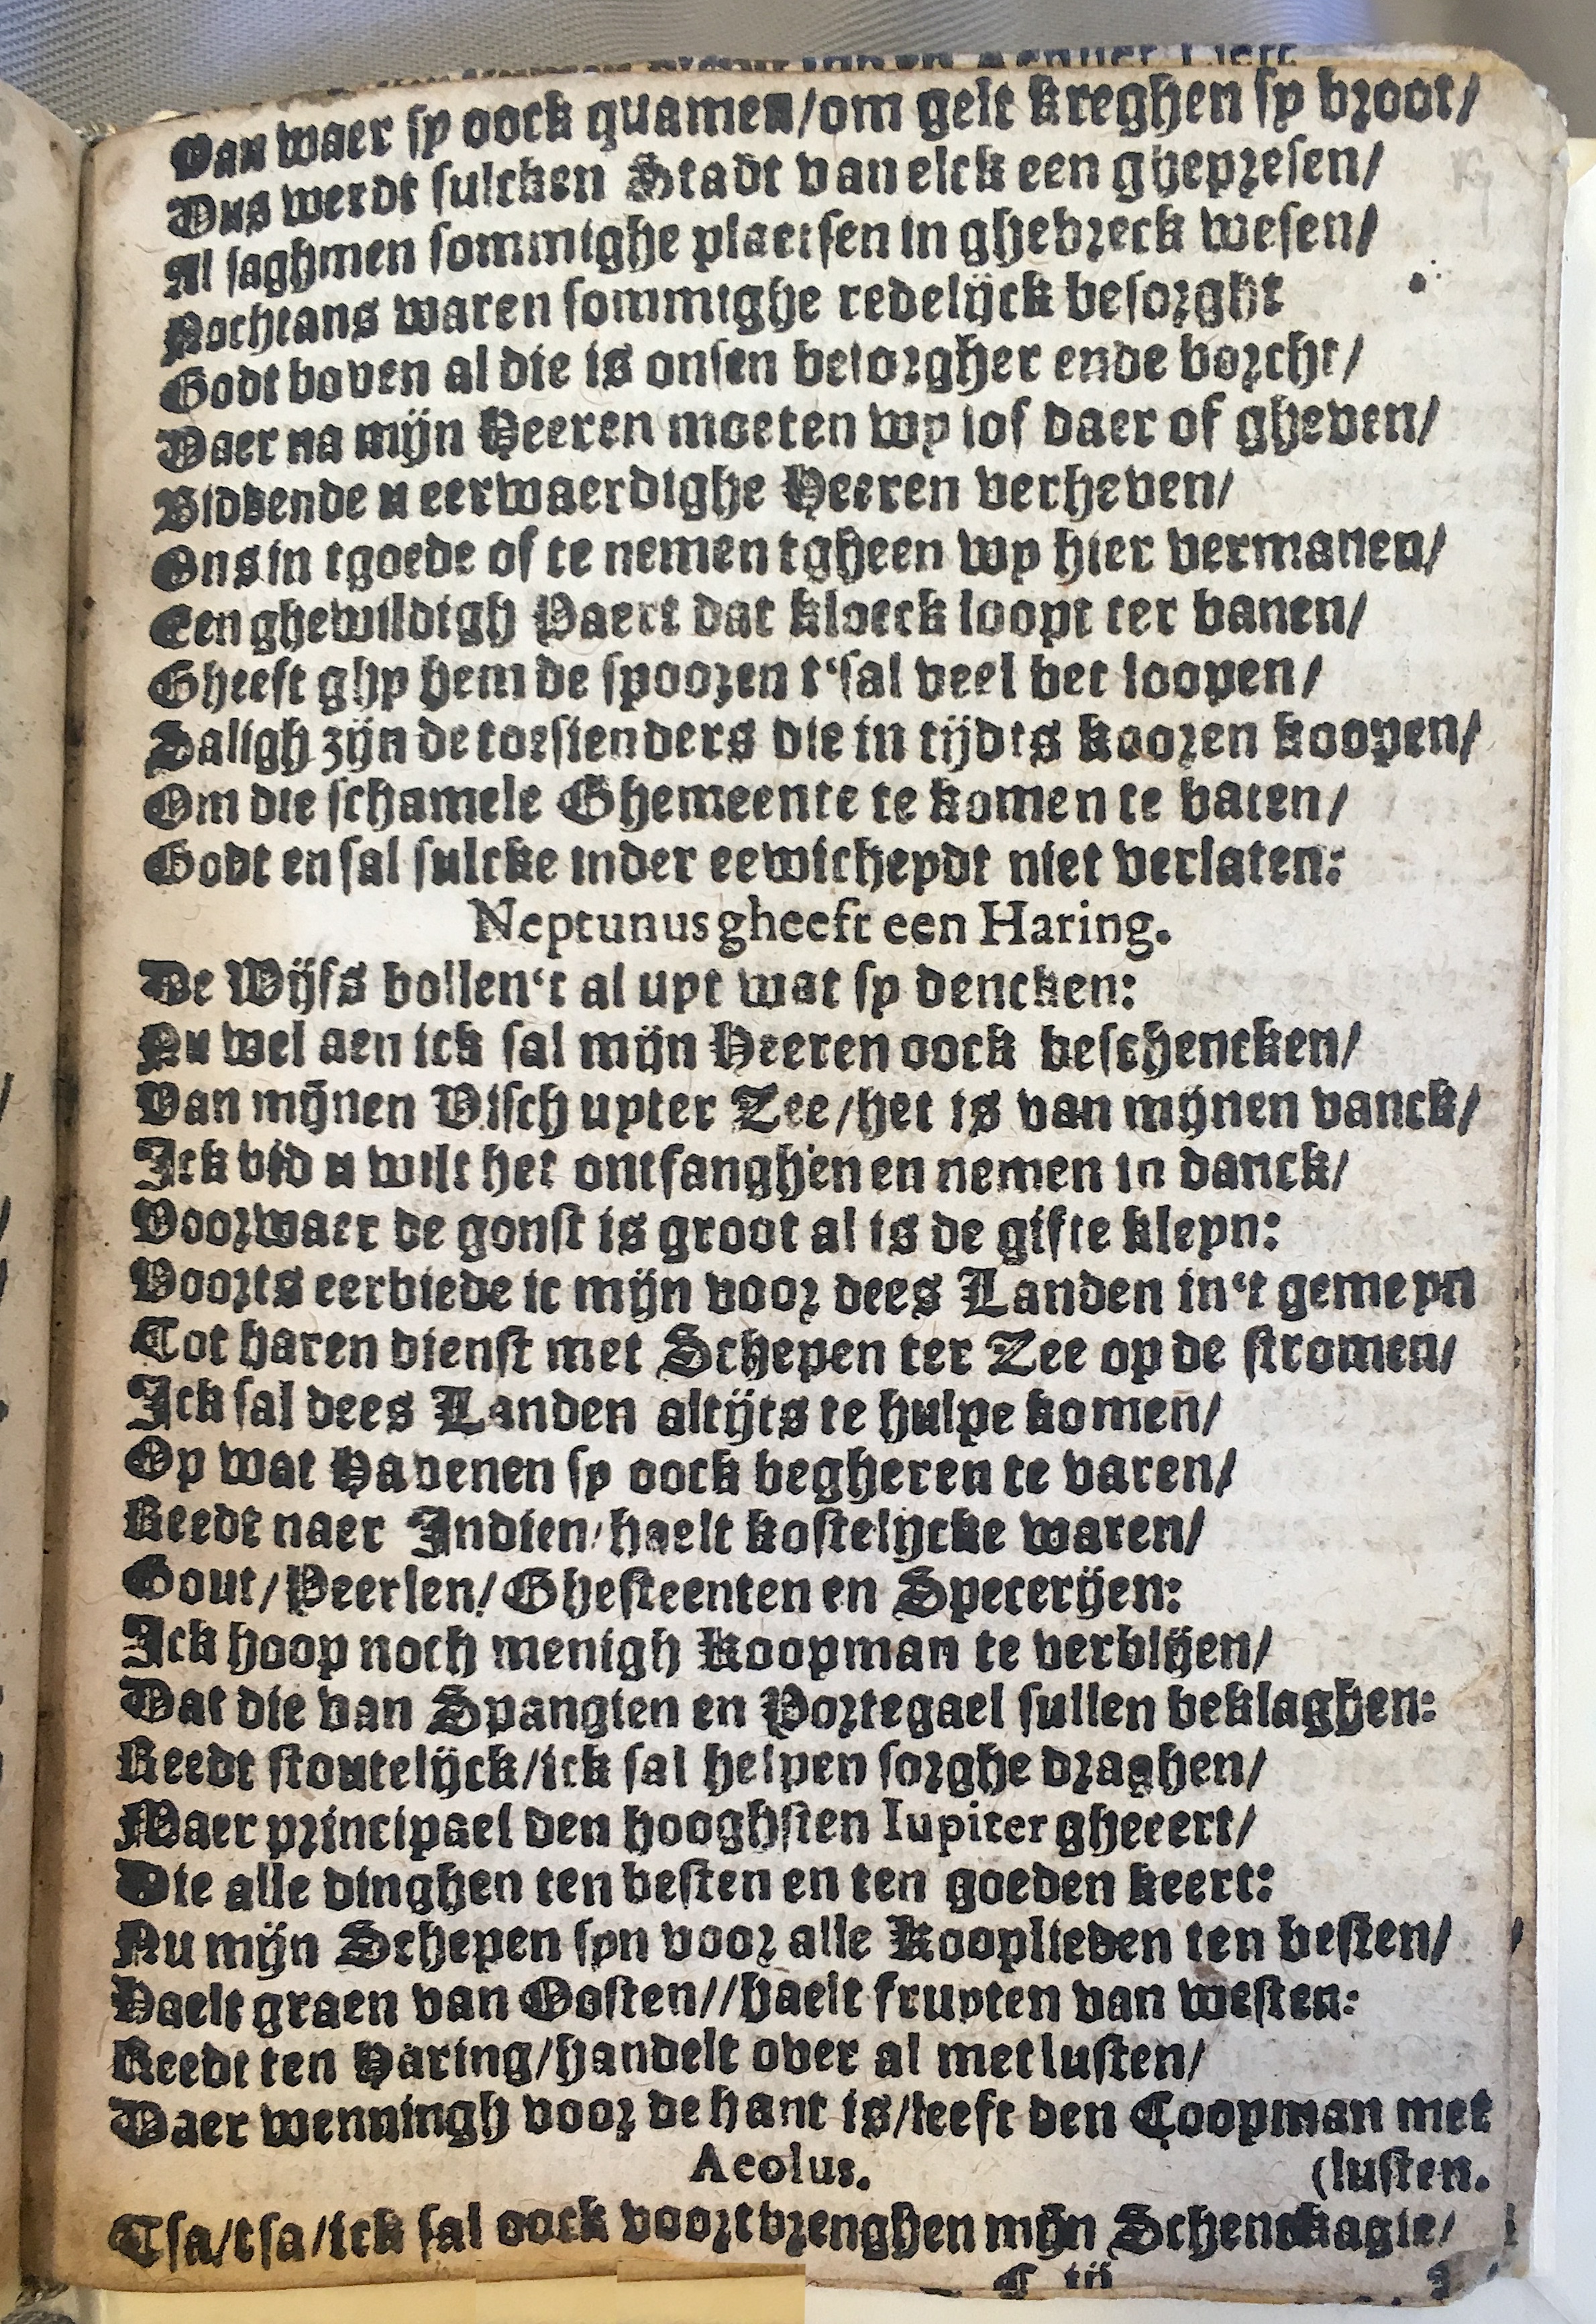 Van waer sy oock quamen/om gelt kreghen sy broot/
Dus werdt sulcken Stadt van elck een ghepresen/
Al saghmen sommighe plaetsen in ghebreck wesen/
Nochtans waren sommighe redelijck besorght
Godt boven al die is onsen besorgher ende borcht/
Daer na mijn Heeren moeten wy lof daer of gheven/
Biddende u eerwaerdighe Heeren verheven/
Ons in tgoede of te nemen tgheen wy hier vermanen/
Een ghewildigh Paert dat kloeck loopt ter banen/
Gheeft ghy hem de spooren t‘sal veel bet loopen/
Saligh zijn de toesienders die in tijdts kooren koopen/
Om die schamele Ghemeente te komen te baten/
Godt en sal sulcke inder eewicheydt niet verlaten:
Neptunus gheeft een Haring.
De Wijfs bollen‘t al upt wat sy dencken:
Nu wel aen ick sal mijn Heeren oock beschencken/
Van mijnen Visch upter Zee/het is van mijnen vanck/
Ick bid u wilt het ontfanghen en nemen in danck/
Voorwaer de gonst is groot al is de gifte kleyn:
Voorts eerbiede ic mijn voor dees Landen in‘t gemeyn
Tot haren dienst met Schepen ter Zee op de stromen/
Ick sal dees Landen altijts te hulpe komen/
Op wat Havenen sy oock begheren te varen/
Reedt naer Indien/haelt kostelijcke waren/
Gout/Peerlen/Ghesteenten en Specerijen:
Ick hoop noch menigh Koopman te verblijen/
Dat die van Spangien en Portegael sullen beklaghen:
Reedt stoutelijck/ick sal helpen sorghe draghen/
Maer principael den hooghsten Iupiter gheeert/
Die alle dinghen ten besten en ten goeden keert:
Nu mijn Schepen syn voor alle Kooplieden ten besten/
Haelt graen van Oosten//haelt fruyten van westen:
Reedt ten Haring/handelt over al met lusten/
Daer wenningh voor de hant is/leeft den Coopman met
Aeolus. (lusten.
Tsa/tsa/ick sal oock voortbrenghen mijn Schenckagie/
C iij